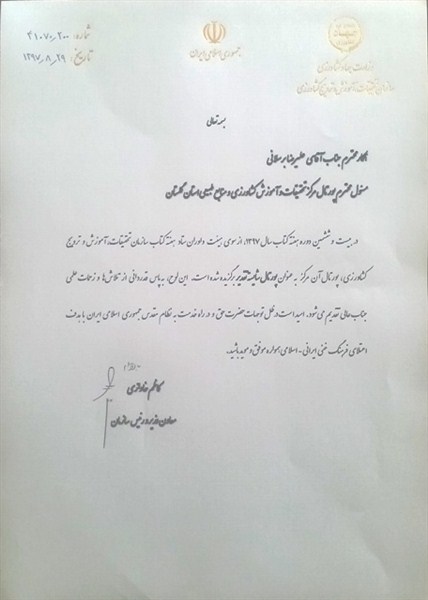 شماره: ۴۱۰۷۰/۲۰۰
تاریخ: ۱۳۹۷/۸/۲۹
جمهوری اسلامی ایران
وزارت جهاد کشاورزی
سازمان تحقیقات، آموزش و ترویج کشاورزی
بسمه تعالی
همکار محترم جناب آقای علیرضا برسلانی
مسئول محترم پورتال مرکز تحقیقات و آموزش کشاورزی و منابع طبیعی استان گلستان
در بیست و ششمین دوره هفته کتاب سال ۱۳۹۷، از سوی هیئت داوران ستاد هفته کتاب سازمان تحقیقات، آموزش و ترویج
کشاورزی، پورتال آن مرکز به عنوان پورتال شایسته تقدیر برگزیده شده است. این لوح، به پاس قدردانی از تلاش‌ها و زحمات علمی
جناب‌عالی تقدیم می‌شود. امید است در ظل توجهات حضرت حق و در راه خدمت به نظام مقدس جمهوری اسلامی ایران با هدف
اعتلای فرهنگ غنی ایرانی - اسلامی همواره موفق و موید باشید.
کاظم خاوازی
معاون وزیر و رئیس سازمان